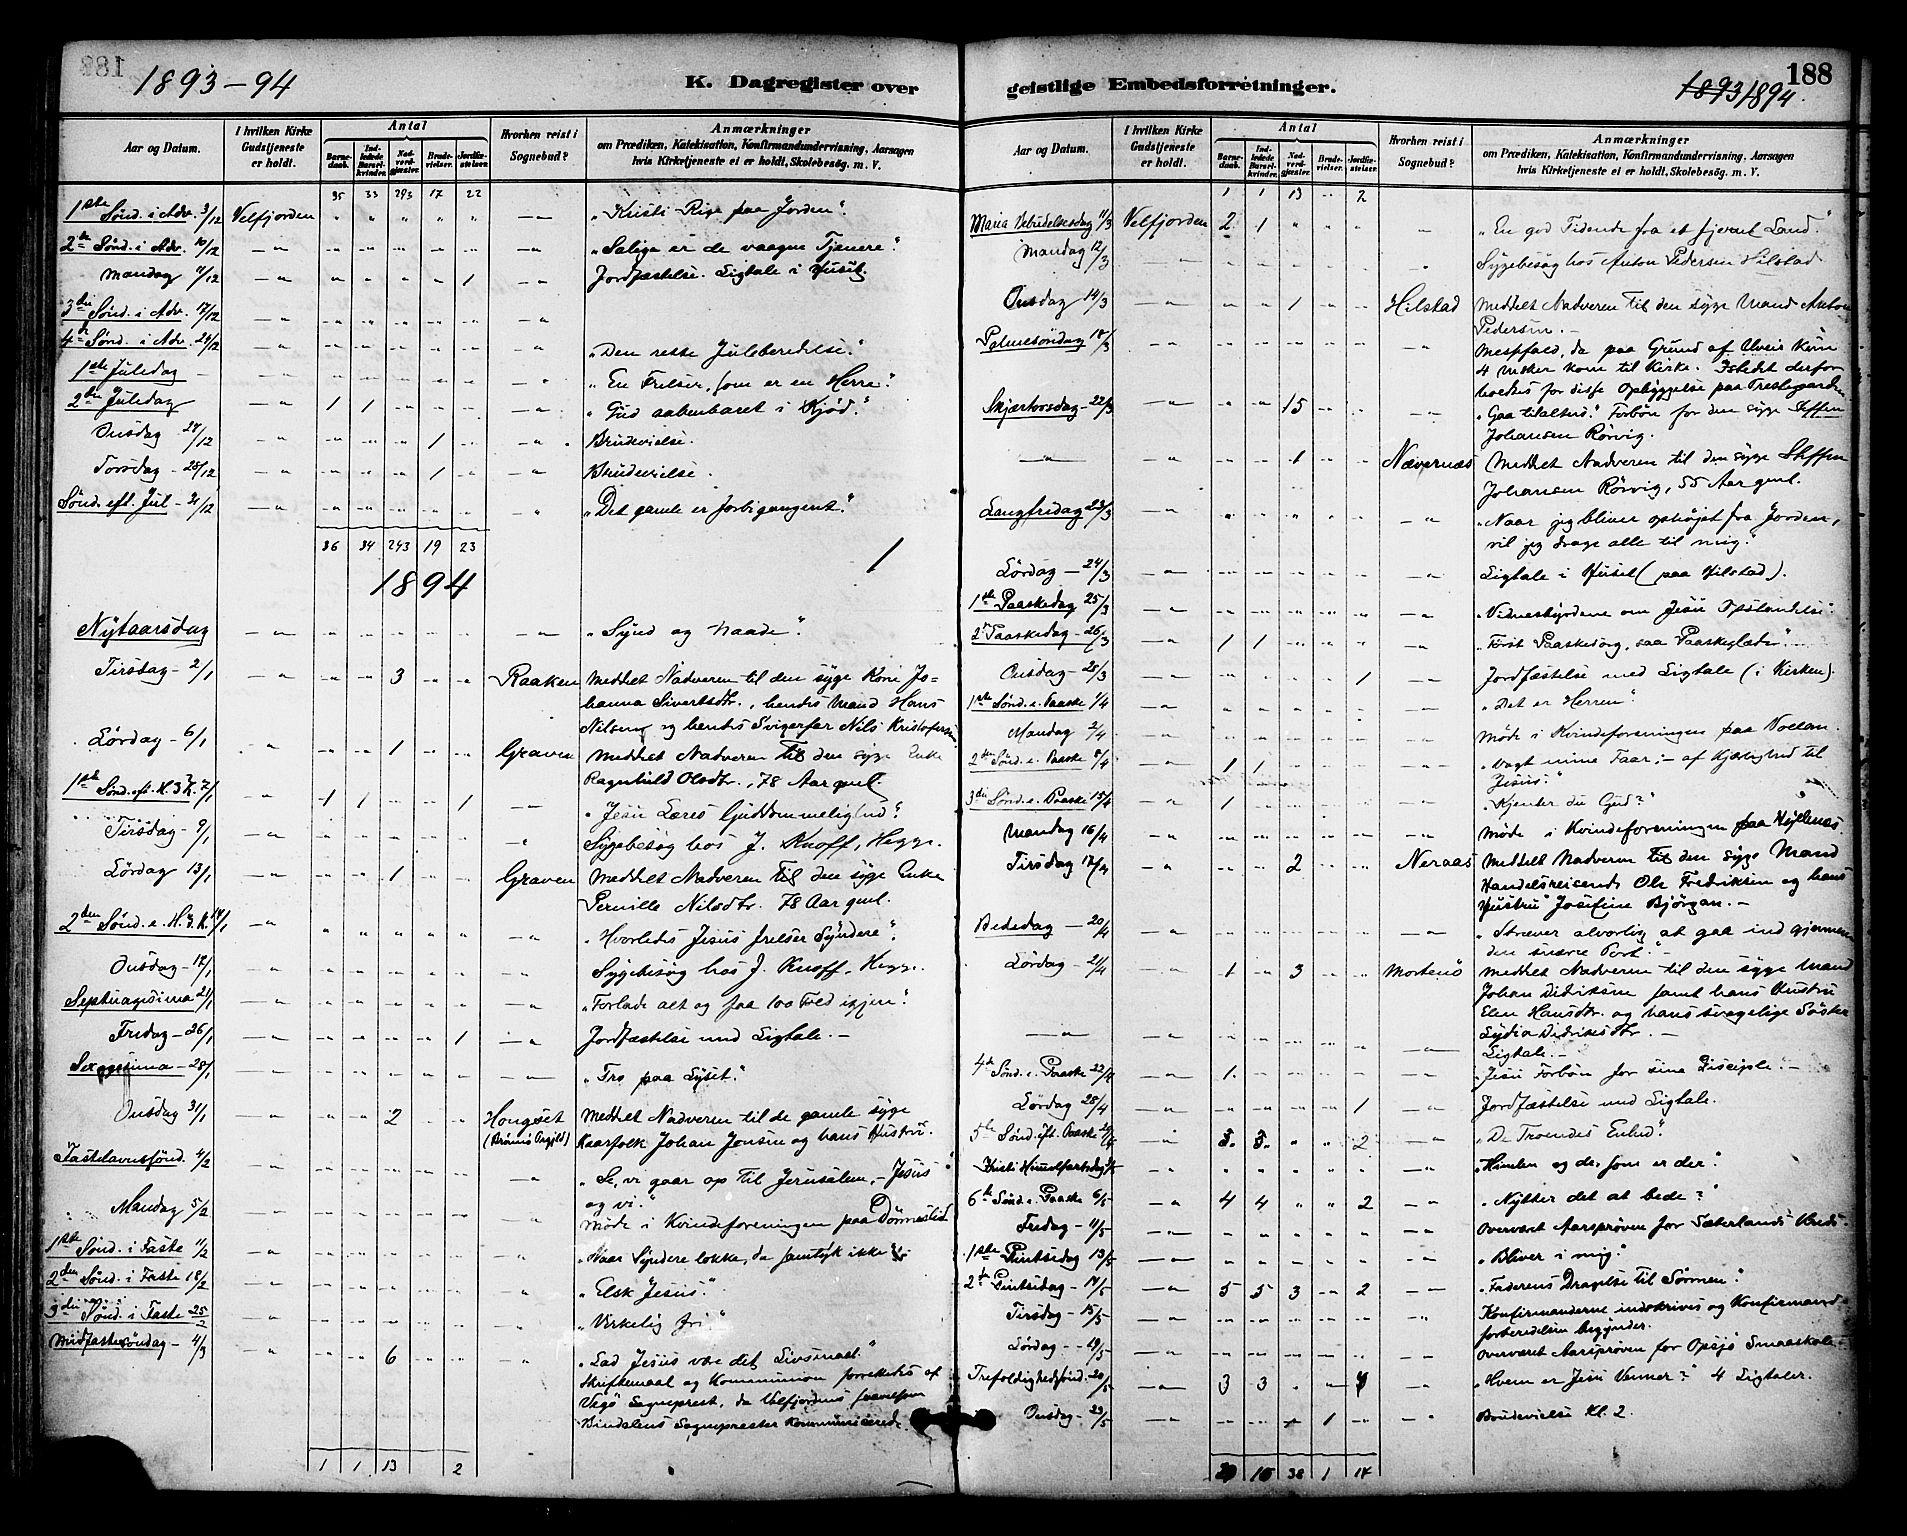 1893-94
K. Dagregister over
Aar og Datum.
I hvilken Kirke Gudstjeneste er holdt.
Antal
Barnedaab.
Indledede Barselkvinder.
Nadverdgjæster.
Brudevielser.
Jordfæstelser.
Hvorhen reist i Sognebud?
Anmærkninger
om Prædiken, Katekisation, Konfirmandundervisning, Aarsagen
hvis Kirketjeneste ei er holdt, Skolebesög m. V.
35 33 293 17 22
1ste Sönd. i Adv. 3/12 Velfjorden " " " " " —"— "Kristi Rige paa Jorden".
2de Sönd. i Adv. 10/12 —"— " " " " " —"— "Salige er de vaagne Tjenere".
Mandag 11/12 —"— " " " " 1 —"— Jordfæstelse. Ligtale i Huset.
3die Sönd. i Adv. 17/12 —"— " " " " " —"—
4de Sönd. i Adv. 24/12 —"— " " " " " —"— "Den rette Juleberedelse."
1ste Juledag —"— " " " " " " "En Frelser, som er en Herre".
2den Juledag —"— 1 1 " " " —"— "Gud aabenbaret i Kjöd."
Onsdag 27/12 —"— " " " 1 " —"— Brudevielse.
Torsdag 28/12 —"— " " " 1 " —"— Brudevielse.
Sönd. eft. Jul 31/12 —"— " " " " " " "Det gamle er forbigangent".
36 34 243 19 23
1894
Nytaarsdag —"— " " " " " —"— "Synd og Naade".
Tirsdag 2/1 —"— " " 3 " " Raaken Meddelt Nadveren til den syge Kone Jo-
hanna Sivertsdtr., hendes Mand Hans
Nilsen og hendes Svigerfar Nils Kristofersen
Lördag 6/1 " " " 1 " " Graven Meddelt Nadveren til den syge Enke
Ragnhild Olsdtr., 78 Aar gml.
1ste Sönd. eft. H. 3 K. 7/1 —"— 1 1 " " 1 —"— "Jesu Læres Guddommelighed".
Tirsdag 9/1 —"— " " " " " " Sygebesög hos J. Knoff, Hegge.
Lördag 13/1 —"— " " 1 " " Graven Meddelt Nadveren til den syge Enke
Pernille Nilsdtr. 78 Aar gml.
2den Sönd. e. H. 3 K. 14/1 —"— " " " " " —"— "Hvorledes Jesus frelser Syndere".
Onsdag 17/1 —"— " " " " " —"— Sygebesög hos J. Knoff, Hegge.
Septuagesima 21/1 —"— " " " " " —"— "Forlade alt og faa 100 Fold igjen".
Fredag 26/1 —"— " " " " 1 —"— Jordfæstelse med Ligtale. —
Sexagesima 28/1 —"— " " " " " —"— "Tro paa Lyset."
Onsdag 31/1 —"— " " 2 " " Hongset Meddelt Nadveren til de gamle syge
Kaarfolk Johan Jonsen og hans Hustru.
Fastelavnssönd. 4/2 —"— " " " " " —"— "Se, vi gaar op til Jerusalem, – Jesus
og vi".
Mandag 5/2 —"— " " " " " —"— Möde i Kvindeforeningen paa Dönnestad
1ste Sönd. i Faste 11/2 —"— " " " " " —"— "Naar Syndere lokke, da samtyk ikke"
2den Sönd. i Faste 18/2 —"— " " " " " " "Elsk Jesus."
3die Sönd. i Faste 25/2 —"— " " " " " " "Virkelig fri."
Midfastesöndag 4/3 —"— " " 6 " " " "Lad Jesus være det Livsmaal."
Skriftemaal og Kommunion forrettedes af
Vegö Sogneprest, da Velfjordens saavelsom
Bindalens Sogneprester kommunicerede
1 1 13 2
geistlige Embedsforretninger.
188
1893 1894.
Aar og Datum.
I hvilken Kirke Gudstjeneste er holdt.
Antal
Barnedaab.
Indledede Barselkvinder.
Nadverdgjæster.
Brudevielser.
Jordfæstelser.
Hvorhen reist i Sognebud?
Anmærkninger
om Prædiken, Katekisation, Konfirmandundervisning, Aarsagen
hvis Kirketjeneste ei er holdt, Skolebesög m. V.
1 1 13 " 2
Maria Bebudelsesdag 11/3 Velfjorden 2 1 " " " " "En god Tidende fra et fjernt Land."
Mandag 12/3 —"— " " " " " " Sygebesög hos Anton Pedersen Hilstad
Onsdag 14/3 —"— " " 1 " " Hilstad Meddelt Nadveren til den syge Mand Anton
Pedersen. —
Palmesöndag 18/3 —"— " " " " " " Messefald, da paa Grund af Uveir kun
4 Msker kom til Kirke. Istedet derfor
holdtes for disse Opbyggelse paa Prestegaarden
Skjærtorsdag 22/3 —"— " " 15 " " " "Gaa til alterd." Forbön for den syge Steffen
Johansen Rörvig.
—"— " " 1 " " Nævernæs Meddelt Nadveren til den syge Steffen
Johansen Rörvig, 55 Aar gml.
Langfredag 23/3 —"— " " " " " —"— "Naar jeg bliver ophöjet fra Jorden,
vil jeg drage alle til mig."
Lördag 24/3 —"— " " " " " —"— Ligtale i Huset (paa Hilstad).
1ste Paaskedag 25/3 —"— " " " " " —"— "Vidnesbyrdene om Jesu Opstandelse".
2den Paaskedag 26/3 —"— 1 1 " " " —"— "Först Paaskesorg, saa Paaskeglæde".
Onsdag 28/3 —"— " " " " 1 —"— Jordfæstelse med Ligtale (i Kirken).
1ste Sönd. e. Paaske 1/4 —"— " " " " " —"— "Det er Herren".
Mandag 2/4 —"— " " " " " —"— Möde i Kvindeforeningen paa
2den Sönd. e. Paaske 8/4 —"— 1 1 " " " —"— "Vogt mine Faar; – af Kjærlighed til
Jesus."
3die Sönd. e. Paaske 15/4 —"— 1 " " " " —"— "Kjender du Gud?"
Mandag 16/4 —"— " " " " " —"— Möde i Kvindeforeningen paa
Tirsdag 17/4 —"— " " 2 " " Neraas Meddelt Nadveren til den syge Mand
Handelsreisende Ole Fredriksen og hans
Hustru Josefine Björgan. —
Bededag 20/4 —"— " " " " " —"— "Stræver alvorlig at gaa ind gjennem
den snævre Port."
Lördag 21/4 —"— 1 " 3 " " Mortenö Meddelt Nadveren til den syge Mand
Johan Didriksen samt hans Hustru
Elen Hansdtr. og hans svagelige Söster
Lydia Didriksdtr. —
—"— —"— Ligtale. —
4de Sönd. e. Paaske 22/4 —"— 1 " " " " —"— "Jesu Forbön for sine Disciple".
Lördag 28/4 —"— " " " " 1 —"— Jordfæstelse med Ligtale.
5te Sönd. eft. Paaske 29/4 —"— 3 3 " " 2 —"— "De Troendes Enhed".
Kristi Himmelfartsdag 3/5 " " " " " " " "Himlen og de, som er der".
6te Sönd. e. Paaske 6/5 —"— 4 4 " " 2 —"— "Nytter det at bede?"
Fredag 11/5 —"— " " " " " " Overværet Aarspröven for Sæterlands Kreds.
1ste Pintsedag 13/5 —"— " " " " " —"— "Bliver i mig."
2den Pintsedag 14/5 —"— 5 5 3 " 2 —"— "Faderens Dragelse til Sönnen".
Tirsdag 15/5 —"— " " " " " —"— Konfirmanderne indskrives og Konfirmand-
forberedelsen begynder.
Lördag 19/5 —"— " " " " " —"— Overværet Aarspröven for Opsjö Smaaskole.
Trefoldighedssönd. 20/5 —"— 3 3 " " 4 —"— "Hvem er Jesu Venner?" 4 Ligtaler.
Onsdag 23/5 —"— " " " 1 " " Brudevielse Kl. 2.
15 38 1 14